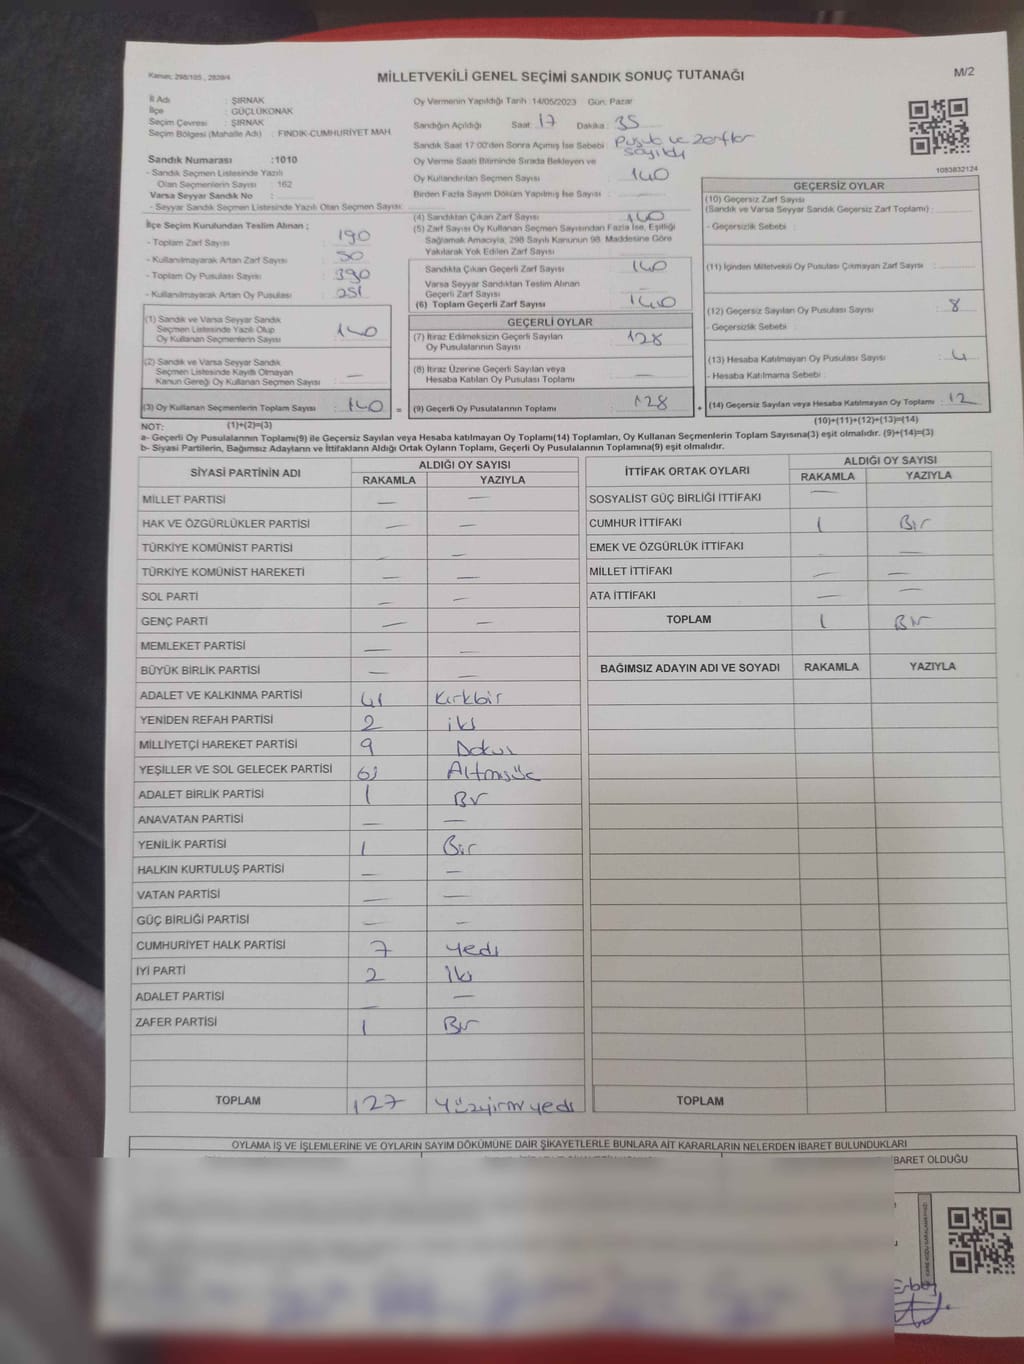 Kanun; 298/105 , 2839/4
MİLLETVEKİLİ GENEL SEÇİMİ SANDIK SONUÇ TUTANAĞI
M/2
İl Adı : ŞIRNAK
İlçe : GÜÇLÜKONAK
Seçim Çevresi : ŞIRNAK
Seçim Bölgesi (Mahalle Adı) : FINDIK-CUMHURIYET MAH
Sandık Numarası :1010
- Sandık Seçmen Listesinde Yazılı
Olan Seçmenlerin Sayısı : 162
Varsa Seyyar Sandık No :
- Seyyar Sandık Seçmen Listesinde Yazılı Olan Seçmen Sayısı:
İlçe Seçim Kurulundan Teslim Alınan ;
- Toplam Zarf Sayısı : 190
- Kullanılmayarak Artan Zarf Sayısı : 50
- Toplam Oy Pusulası Sayısı : 390
- Kullanılmayarak Artan Oy Pusulası : 251
(1) Sandık ve Varsa Seyyar Sandık
Seçmen Listesinde Yazılı Olup
Oy Kullanan Seçmenlerin Sayısı : 140
(2) Sandık ve Varsa Seyyar Sandık
Seçmen Listesinde Kayıtlı Olmayan
Kanun Gereği Oy Kullanan Seçmen Sayısı : —
(3) Oy Kullanan Seçmenlerin Toplam Sayısı : 140 =
(1)+(2)=(3)
Oy Vermenin Yapıldığı Tarih :14/05/2023 Gün: Pazar
Sandığın Açıldığı Saat: 17 Dakika : 35
Sandık Saat 17:00'den Sonra Açılmış İse Sebebi : Pusula ve zarflar
sayıldı
Oy Verme Saati Bitiminde Sırada Bekleyen ve
Oy Kullandırılan Seçmen Sayısı : 140
Birden Fazla Sayım Döküm Yapılmış İse Sayısı :
(4) Sandıktan Çıkan Zarf Sayısı : 140
(5) Zarf Sayısı Oy Kullanan Seçmen Sayısından Fazla İse, Eşitliği
Sağlamak Amacıyla, 298 Sayılı Kanunun 98. Maddesine Göre
Yakılarak Yok Edilen Zarf Sayısı :
Sandıkta Çıkan Geçerli Zarf Sayısı : 140
Varsa Seyyar Sandıktan Teslim Alınan
Geçerli Zarf Sayısı :
(6) Toplam Geçerli Zarf Sayısı : 140
GEÇERLİ OYLAR
(7) İtiraz Edilmeksizin Geçerli Sayılan
Oy Pusulalarının Sayısı : 128
(8) İtiraz Üzerine Geçerli Sayılan veya
Hesaba Katılan Oy Pusulası Toplamı : —
(9) Geçerli Oy Pusulalarının Toplamı : 128 +
1083832124
GEÇERSİZ OYLAR
(10) Geçersiz Zarf Sayısı
(Sandık ve Varsa Seyyar Sandık Geçersiz Zarf Toplamı) :
- Geçersizlik Sebebi :
(11) İçinden Milletvekili Oy Pusulası Çıkmayan Zarf Sayısı :
(12) Geçersiz Sayılan Oy Pusulası Sayısı : 8
- Geçersizlik Sebebi :
(13) Hesaba Katılmayan Oy Pusulası Sayısı : 4
- Hesaba Katılmama Sebebi :
(14) Geçersiz Sayılan veya Hesaba Katılmayan Oy Toplamı : 12
(10)+(11)+(12)+(13)=(14)
NOT:
a- Geçerli Oy Pusulalarının Toplamı(9) ile Geçersiz Sayılan veya Hesaba katılmayan Oy Toplamı(14) Toplamları, Oy Kullanan Seçmenlerin Toplam Sayısına(3) eşit olmalıdır. (9)+(14)=(3)
b- Siyasi Partilerin, Bağımsız Adayların ve İttifakların Aldığı Ortak Oyların Toplamı, Geçerli Oy Pusulalarının Toplamına(9) eşit olmalıdır.
SİYASİ PARTİNİN ADI ALDIĞI OY SAYISI
RAKAMLA YAZIYLA
MİLLET PARTİSİ — —
HAK VE ÖZGÜRLÜKLER PARTİSİ — —
TÜRKİYE KOMÜNİST PARTİSİ —
TÜRKİYE KOMÜNİST HAREKETİ — —
SOL PARTİ — —
GENÇ PARTİ — —
MEMLEKET PARTİSİ — —
BÜYÜK BİRLİK PARTİSİ — —
ADALET VE KALKINMA PARTİSİ 41 Kırkbir
YENİDEN REFAH PARTİSİ 2 iki
MİLLİYETÇİ HAREKET PARTİSİ 9 Dokuz
YEŞİLLER VE SOL GELECEK PARTİSİ 63 Altmışüç
ADALET BİRLİK PARTİSİ 1 Bir
ANAVATAN PARTİSİ — —
YENİLİK PARTİSİ 1 Bir
HALKIN KURTULUŞ PARTİSİ — —
VATAN PARTİSİ — —
GÜÇ BİRLİĞİ PARTİSİ — —
CUMHURİYET HALK PARTİSİ 7 yedi
İYİ PARTİ 2 İki
ADALET PARTİSİ — —
ZAFER PARTİSİ 1 Bir
TOPLAM 127 yüzyirmiyedi
İTTİFAK ORTAK OYLARI ALDIĞI OY SAYISI
RAKAMLA YAZIYLA
SOSYALİST GÜÇ BİRLİĞİ İTTİFAKI —
CUMHUR İTTİFAKI 1 Bir
EMEK VE ÖZGÜRLÜK İTTİFAKI —
MİLLET İTTİFAKI — —
ATA İTTİFAKI — —
TOPLAM 1 Bir
BAĞIMSIZ ADAYIN ADI VE SOYADI RAKAMLA YAZIYLA
TOPLAM
OYLAMA İŞ VE İŞLEMLERİNE VE OYLARIN SAYIM DÖKÜMÜNE DAİR ŞİKAYETLERLE BUNLARA AİT KARARLARIN NELERDEN İBARET BULUNDUKLARI
BARET OLDUĞU